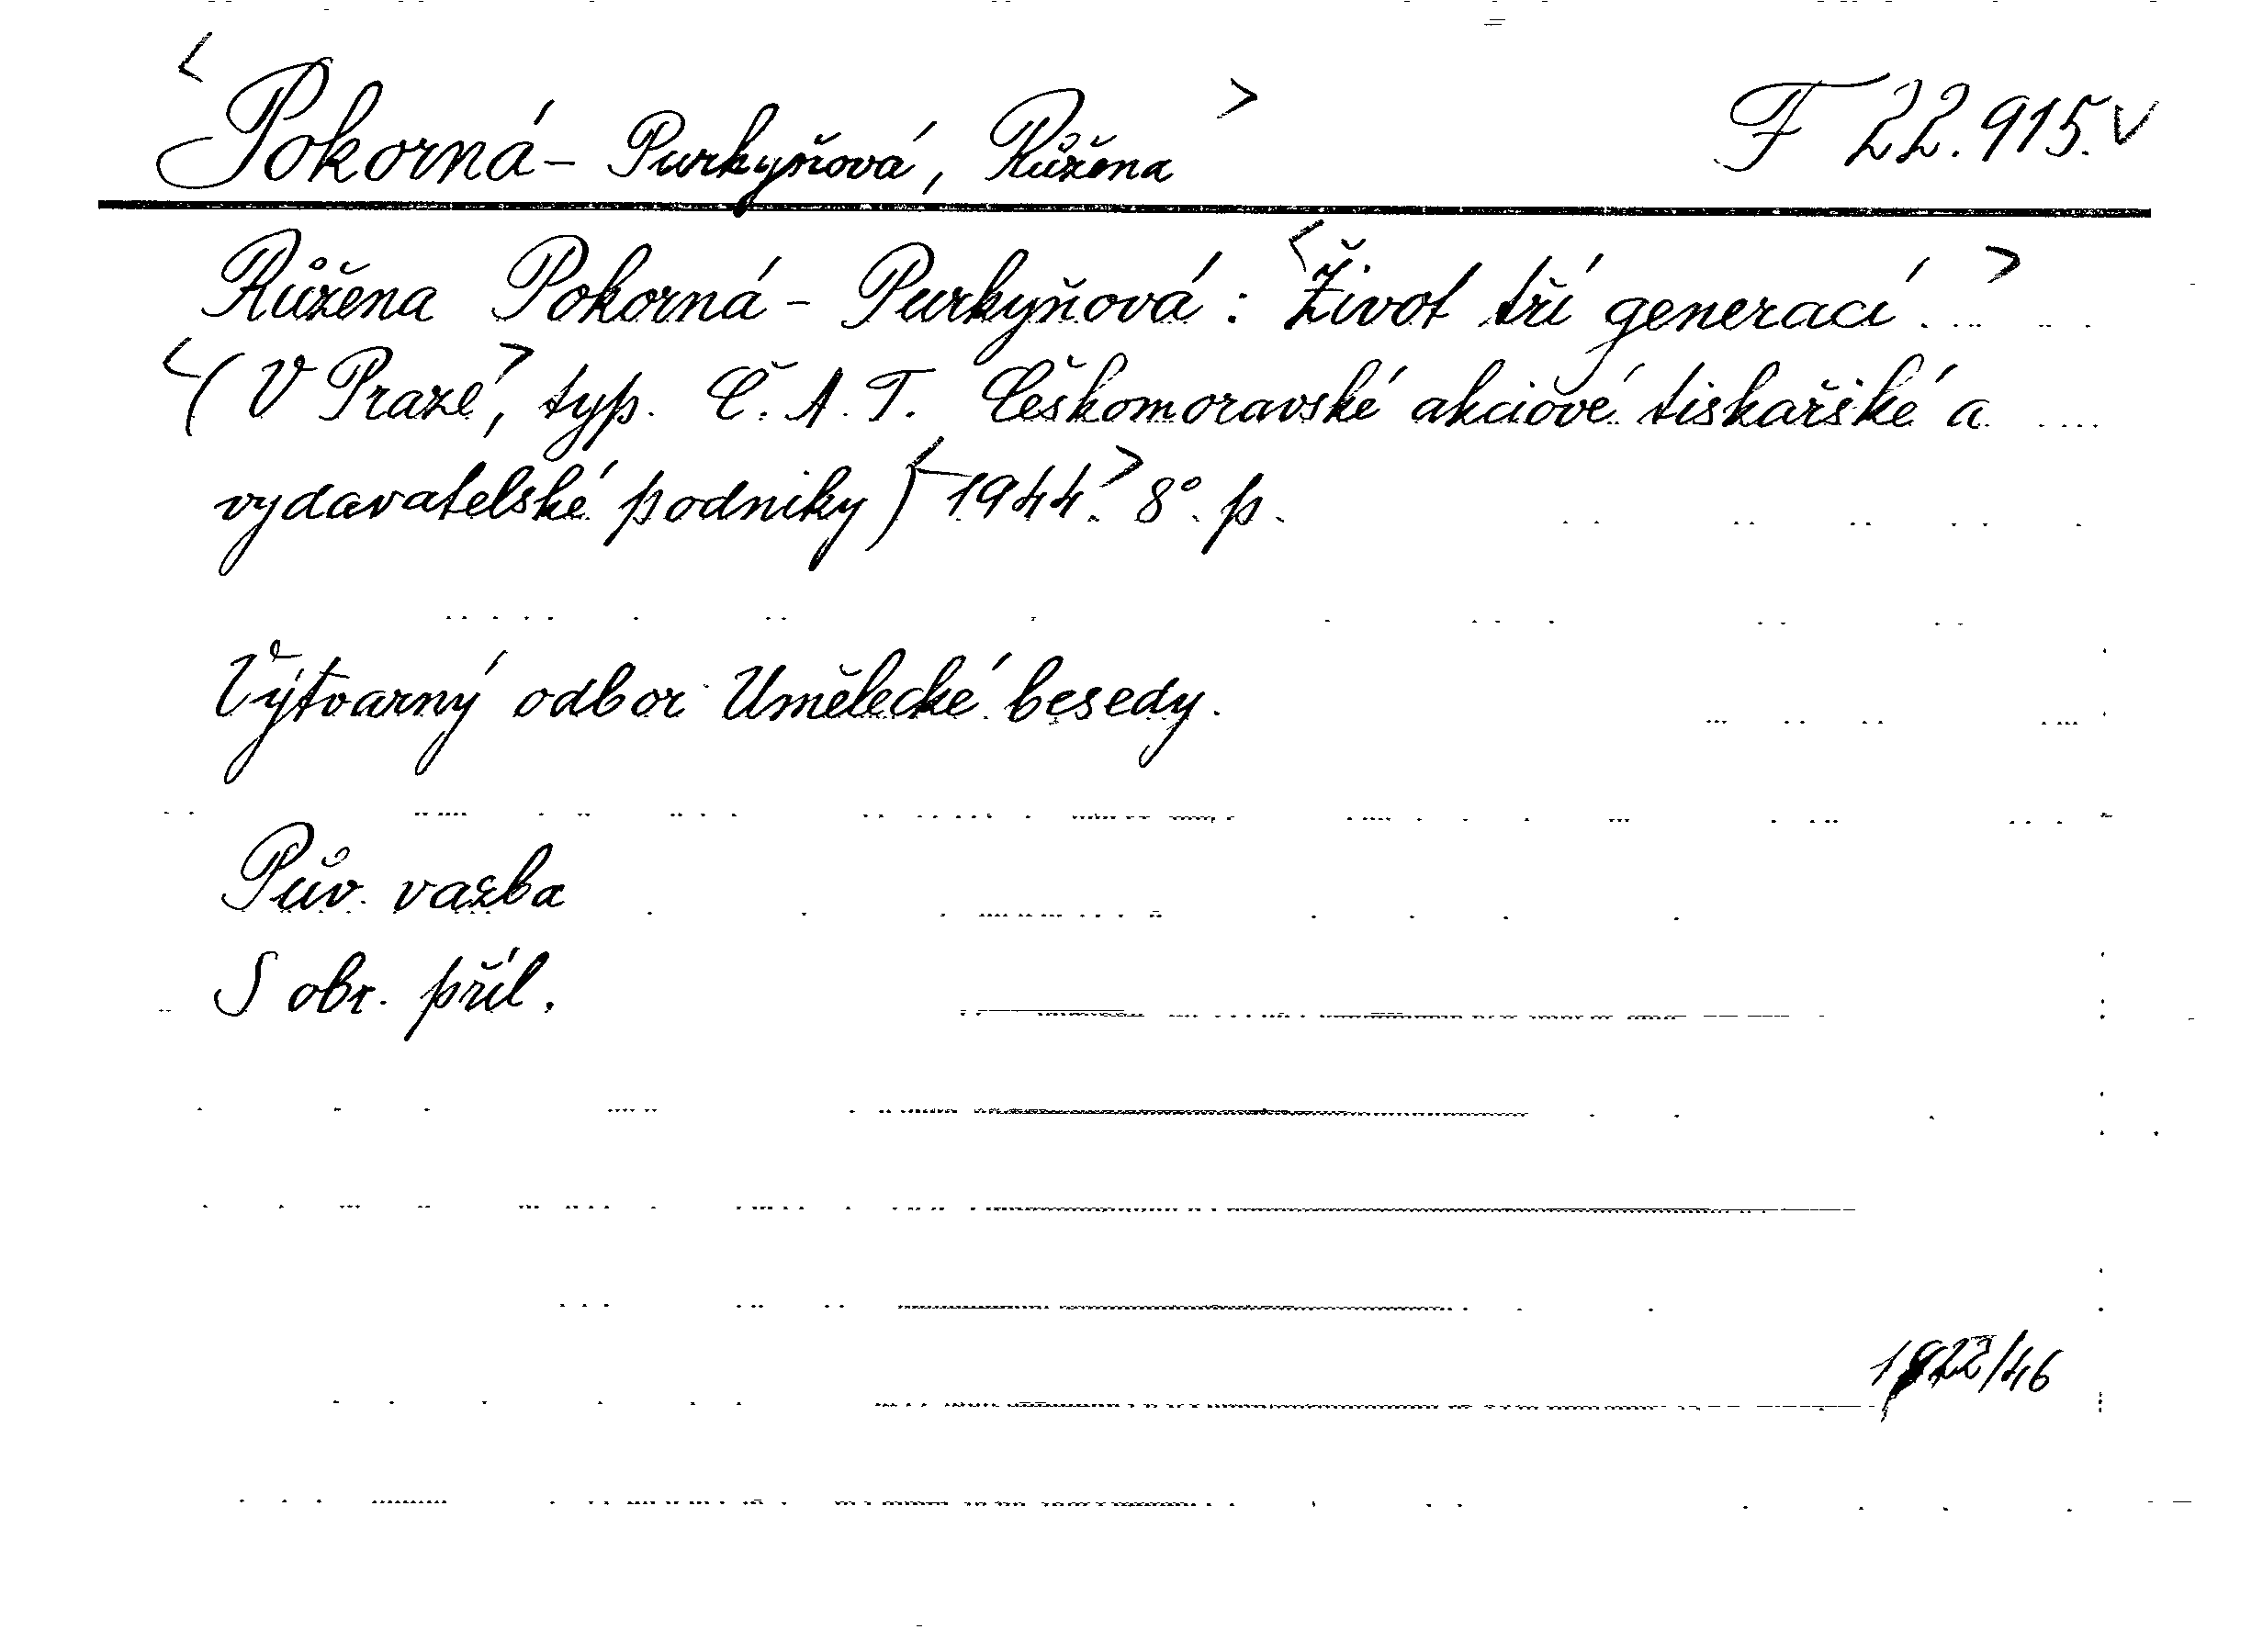 <Pokorná - Purkyňová, Růžena> F 22.915. v
Růžena Pokorná - Purkyňová: <Život tří generací.>
<(V Praze>, typ. Č. A. T. Českomoravské akciové tiskařské a
vydavatelské podniky) <1944.> 8°. p.
Výtvarný odbor Umělecké besedy.
Pův. vazba
S obr. příl.